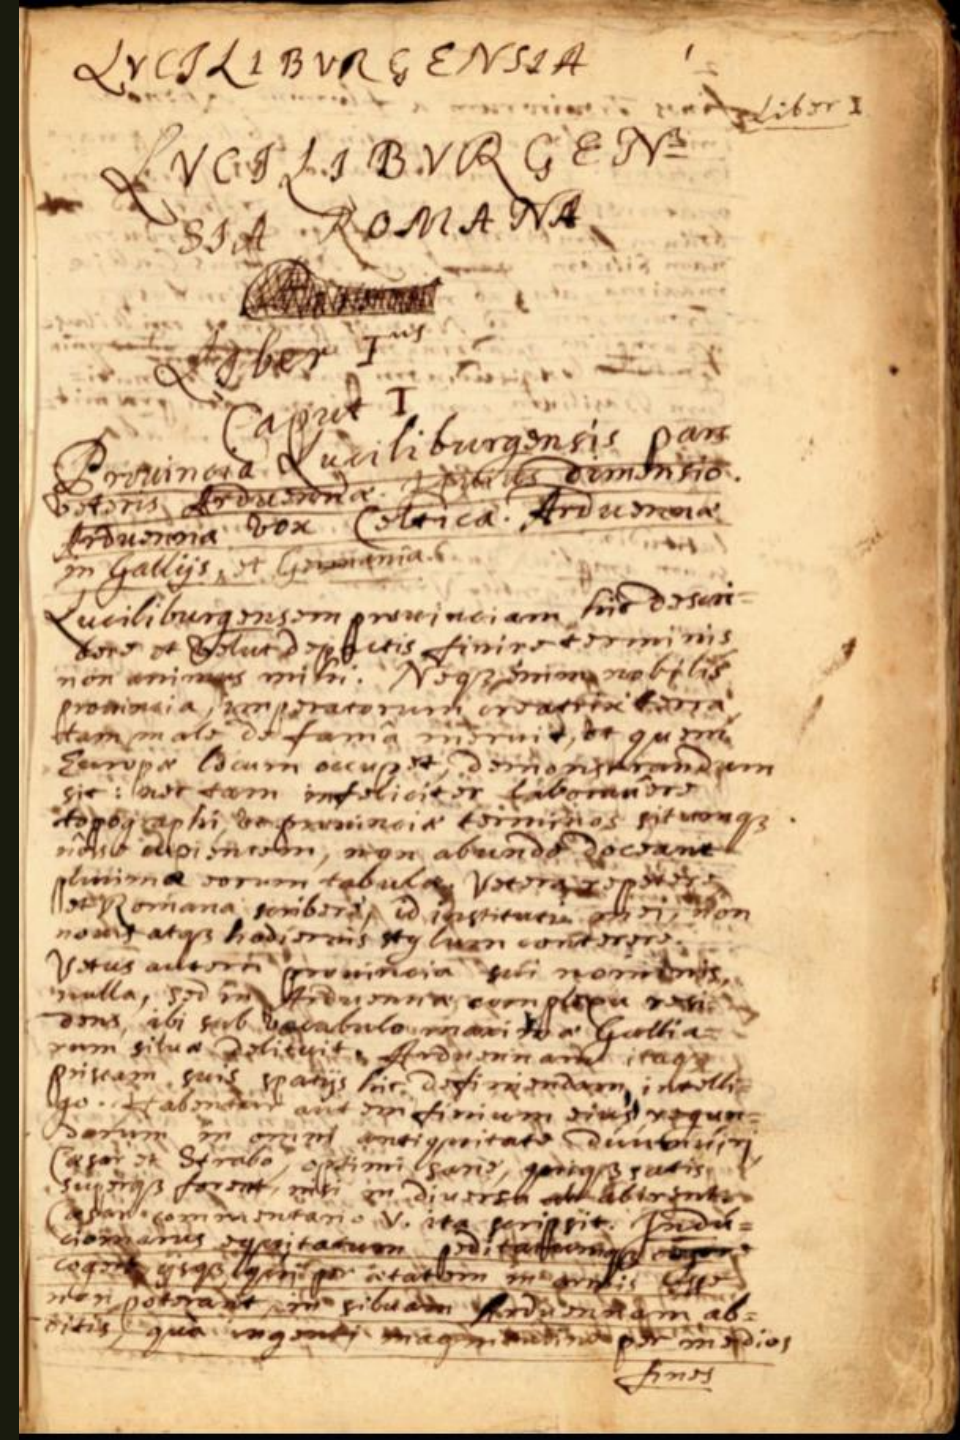 LVCILIBVRGENSIA 1
Liber I
LVCILIBVRGEN=
SIA ROMANA
Liber Ius
Caput I
Provincia Luciliburgensis pars
veteris Arduennæ. dimensio.
Arduenna vox Celtica. Arduenna
in Gallijs, et Germania.
Luciliburgensem provinciam hic descri=
bere et velut depictis finire terminis
non animus mihi. Neqz enim nobilis
provincia, imperatorum creatrix terra
tam male de fama meruit, ut quem
Europæ locum occupet, demonstrandum
sit: nec tam infeliciter laboravêre
topographi, ut provinciæ terminos situmqz
nosse cupientem, non abundè doceant
plurimæ eorum tabulæ. Vetera repetere,
et Romana scribere, id instituti mei, non
novis atqz hodiernis stylum conterere.
Vetus autem provincia sui nominis,
nulla, sed in Arduennæ complexu resi=
dens, ibi sub vocabulo maximæ Gallia=
rum silvæ delituit. Arduennam itaqz
priscam suis spatijs hic definiendam intelli=
go. Habentur autem finium eius regun=
dorum in omni antiquitate duumviri,
Cæsar et Strabo, optimi sane,
superqz forent, nisi in diversa abirent.
Cæsar commentario V. ita scripsit. Indu=
ciomarus equitatum peditatumqz
cogere, ijsqz qui per ætatem in armis esse
non poterant, in silvam Arduennam ab=
ditis, quæ ingenti magnitudine per medios
fines